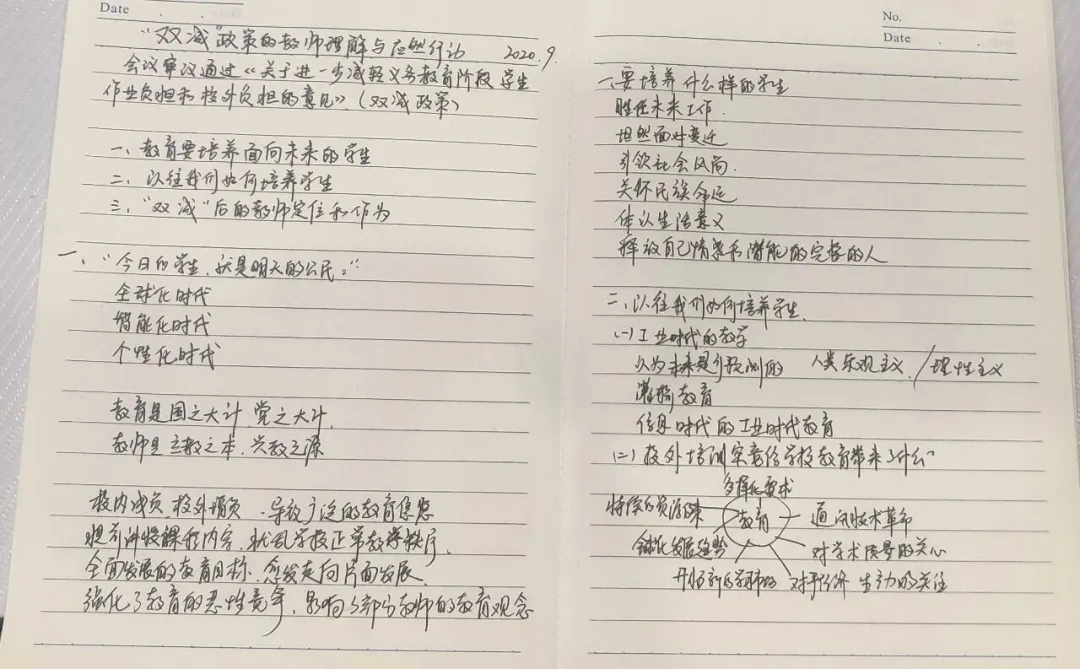 Date
“双减”政策的教师理解与应然行动 2020.9.
会议审议通过《关于进一步减轻义务教育阶段学生
作业负担和校外负担的意见》（双减政策）
一、教育要培养面向未来的学生
二、以往我们如何培养学生
三、“双减”后的教师定位和作为
一、“今日的学生，就是明天的公民。”
全球化时代
智能化时代
个性化时代
教育是国之大计 党之大计
教师是立教之本、兴教之源
校内减负 校外增负 导致广泛的教育焦虑
提前讲授课程内容，扰乱学校正常教学秩序，
全面发展的教育目标，愈发走向片面发展，
强化了教育的恶性竞争，影响了部分教师的教育观念
No.
Date
一、要培养什么样的学生
胜任未来工作
坦然面对变迁
引领社会风尚
关怀民族命运
体认生活意义
释放自己情感和潜能的完整的人
二、以往我们如何培养学生
（一）工业时代的教学
认为未来是可预测的 人类乐观主义/理性主义
灌输教育
信息时代的工业时代教育
（二）校外培训究竟给学校教育带来了什么
多样化要求
教育
通讯技术革命
对学术质量的关心
生动的关注